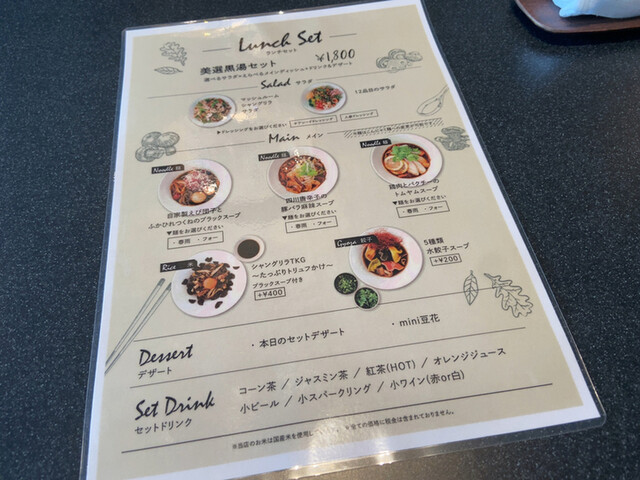 Lunch Set
ランチセット
美選黒湯セット ¥1,800
選べるサラダ+えらべるメインディッシュ+ドリンク&デザート
Salad サラダ
マッシュルーム
シャングリラ
サラダ
12品目のサラダ
▶ドレッシングをお選びください
Main メイン
Noodle 麺
Noodle 麺
Noodle 麺
自家製えび団子と
ふかひれつくねのブラックスープ
▼麺をお選びください
・春雨 ・フォー
四川唐辛子の
豚バラ麻辣スープ
▼麺をお選びください
・春雨 ・フォー
鶏肉とパクチーの
トムヤムスープ
▼麺をお選びください
・春雨 ・フォー
Rice 米
シャングリラTKG
〜たっぷりトリュフかけ〜
ブラックスープ付き
+¥400
Gyoza 餃子
5種類
水餃子スープ
+¥200
Dessert
デザート
・本日のセットデザート
・mini豆花
Set Drink
セットドリンク
コーン茶 / ジャスミン茶 / 紅茶(HOT) / オレンジジュース
小ビール / 小スパークリング / 小ワイン(赤or白)
※当店のお米は国産米を使用し ※全ての価格に税金は含まれておりません。